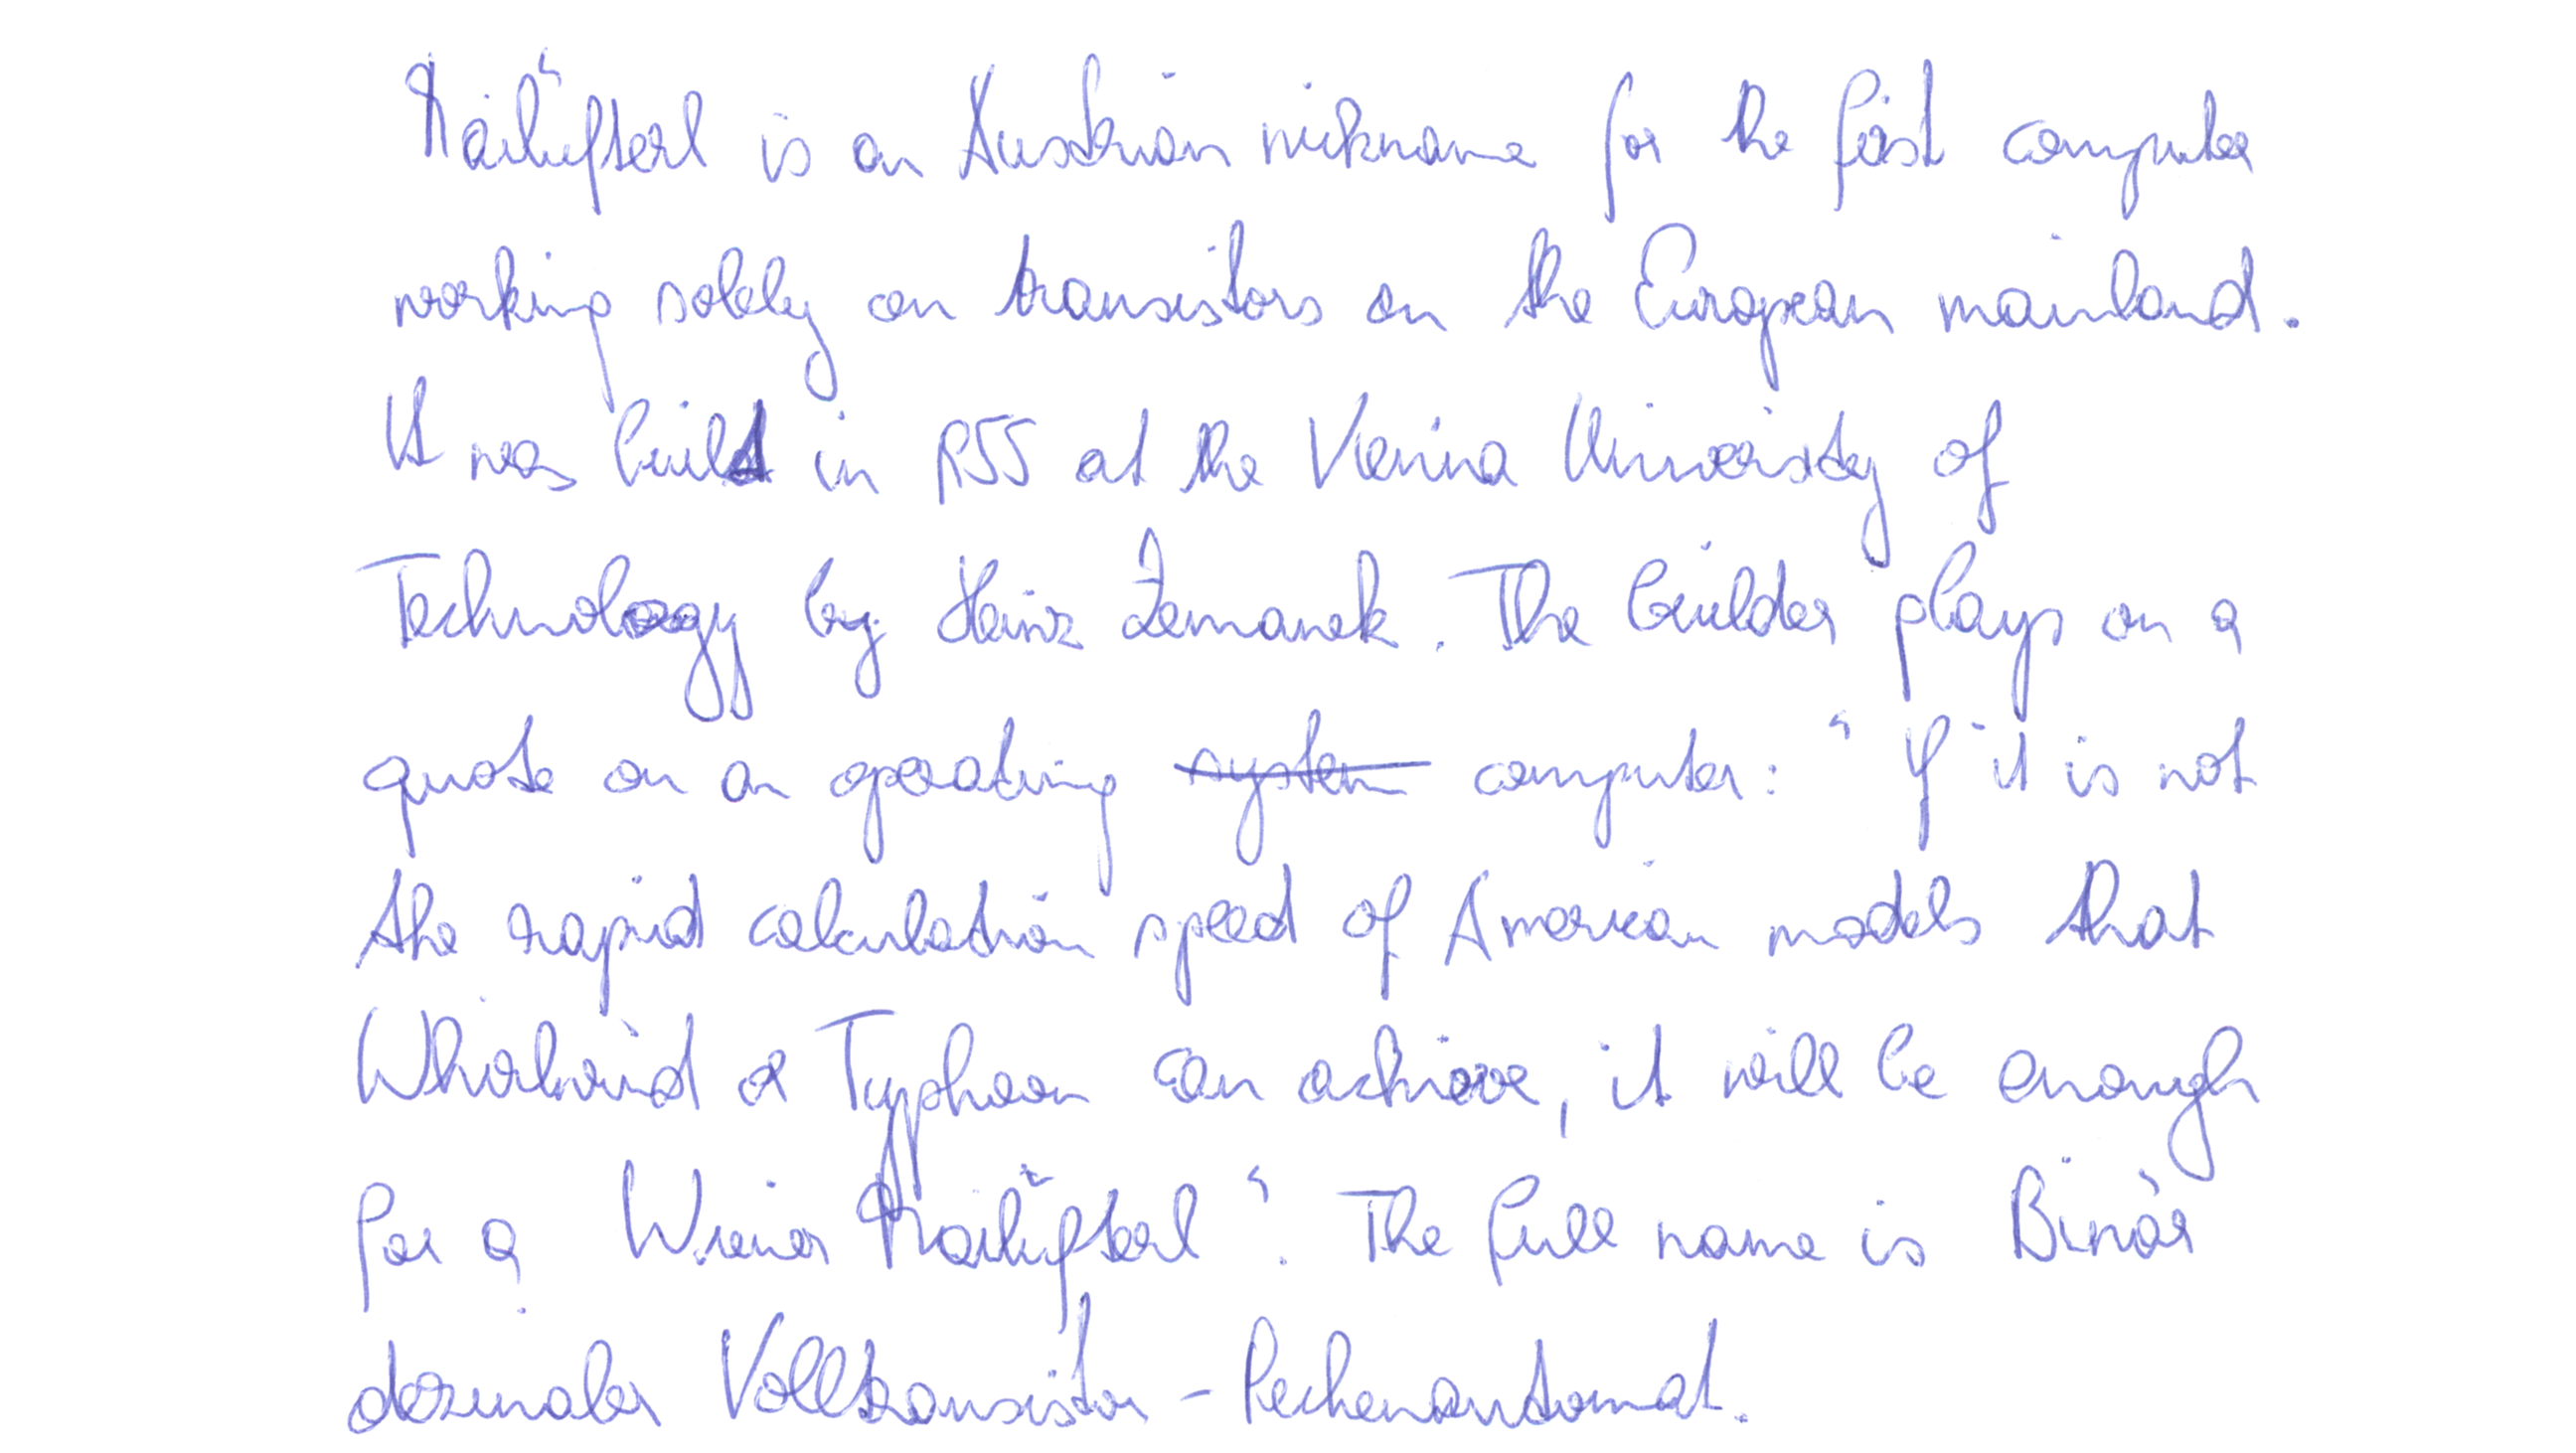 Mailüfterl is an Austrian nickname for the first computer
working solely on transistors on the European mainland.
It was built in 1955 at the Vienna University of
Technology by Heinz Zemanek. The builder plays on a
quote on an operating system computer: "If it is not
the rapid calculation speed of American models that
Whirlwind or Typhoon can achieve, it will be enough
for a Wiener Mailüfterl". The full name is Binär
dezimaler Volltransistor-Rechenautomat.